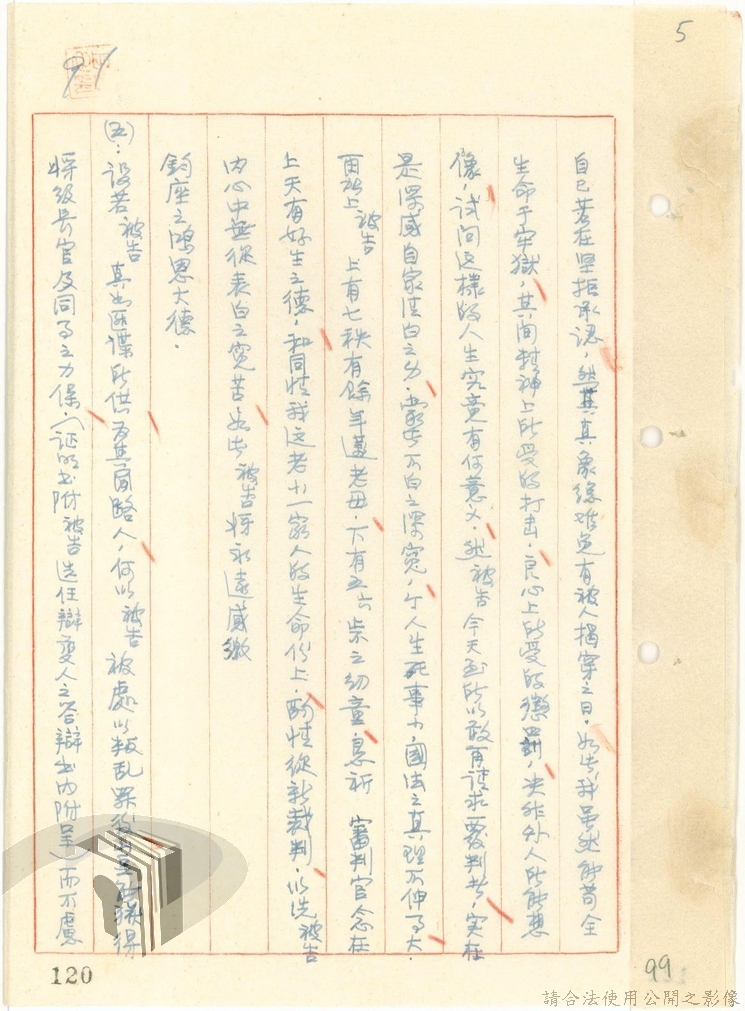 5
自己若在坚拒承認，然其真象總难免有被人揭穿之日。如此我虽然能苟全
生命于牢獄，其间精神上所受的打击，良心上所受的懲罰，决非外人所能想
像，試问这樣的人生究竟有何意义，然被告今天至所以敢再請求覆判者，实在
是深感自家清白之身，蒙此不白之深寃，个人生死事小，國法之真理不伸事大。
再說上被告上有七秩有餘年邁老母下有五六岁之幼童，恳祈 審判官念在
上天有好生之德，和同情我这老小一家人的生命份上，酌情從新裁判，以洗被告
内心中無從表白之寃苦如此被告將永遠感激
鈞座之鴻恩大德。
(五)：設若被告真如匪諜所供为其同路人，何以被告被處以叛乱罪後
將級長官及同事之力保，(証明书附被告选任辯護人之答辯书内附呈)而不慮
120
99
請合法使用公開之影像